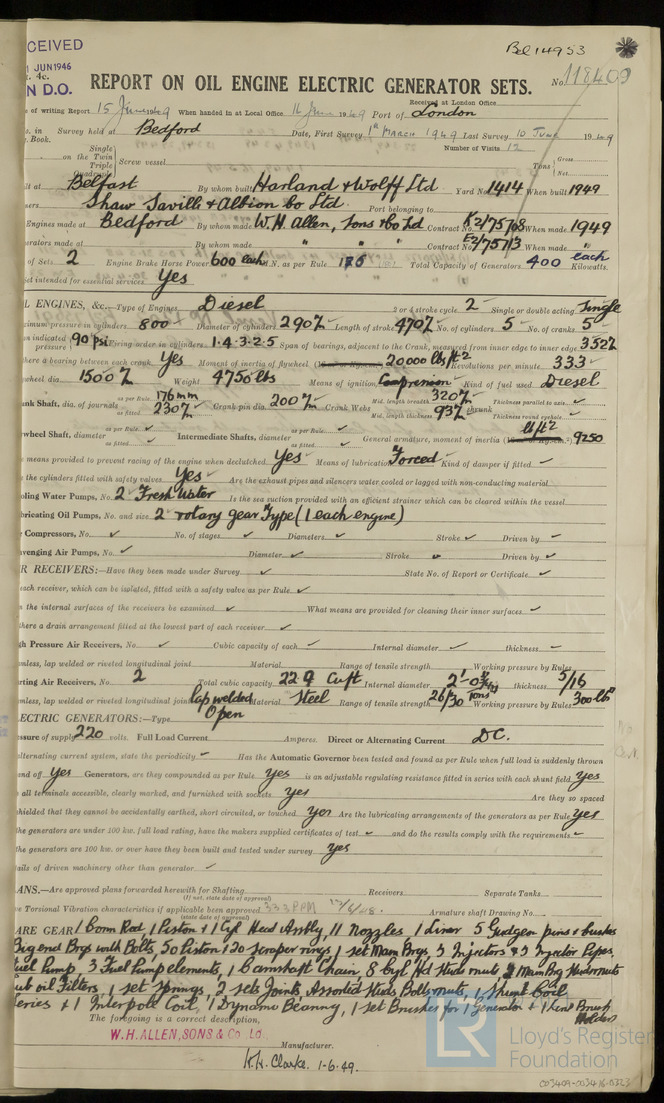 CEIVED
Bel 14953
JUN 1946
4c.
N D.O.
REPORT ON OIL ENGINE ELECTRIC GENERATOR SETS.
No. 118409
Received at London Office
of writing Report 15 June 1949 When handed in at Local Office 16 June 1949 Port of London
in Survey held at Bedford Date, First Survey 1st MARCH 1949 Last Survey 10 June 1949
Book. Number of Visits 12
on the Single Twin Triple Quadruple Screw vessel Tons Gross Net
lt at Belfast By whom built Harland & Wolff Ltd Yard No. 1414 When built 1949
ners Shaw Savill & Albion Co Ltd Port belonging to
Engines made at Bedford By whom made W.H. Allen, Sons & Co Ltd Contract No. K2/75708 When made 1949
erators made at " By whom made " " " Contract No. E2/75713 When made "
of Sets 2 Engine Brake Horse Power 600 each N. as per Rule Total Capacity of Generators 400 each Kilowatts.
Set intended for essential services Yes
L ENGINES, &c.—Type of Engines Diesel 2 or 4 stroke cycle 2 Single or double acting Single
ximum pressure in cylinders 800 Diameter of cylinders 290 Length of stroke 470 No. of cylinders 5 No. of cranks 5
n indicated pressure 90 psi Firing order in cylinders 1.4.3.2.5 Span of bearings, adjacent to the Crank, measured from inner edge to inner edge 352
there a bearing between each crank Yes Moment of inertia of flywheel 20000 lbs/ft² Revolutions per minute 333
wheel dia. 1500 Weight 4750 lbs Means of ignition Compression Kind of fuel used Diesel
ank Shaft, dia. of journals as per Rule 176 mm as fitted 230 Crank pin dia. 200 Crank Webs Mid. length breadth 320 Mid. length thickness 93 shrunk Thickness parallel to axis Thickness round eyehole
wheel Shaft, diameter as per Rule as fitted Intermediate Shafts, diameter as per Rule as fitted General armature, moment of inertia lb ft² 9250
means provided to prevent racing of the engine when declutched Yes Means of lubrication Forced Kind of damper if fitted —
the cylinders fitted with safety valves Yes Are the exhaust pipes and silencers water cooled or lagged with non-conducting material
oling Water Pumps, No. 2 Fresh Water Is the sea suction provided with an efficient strainer which can be cleared within the vessel
bricating Oil Pumps, No. and size 2 rotary gear Type (1 each engine)
r Compressors, No. No. of stages Diameters Stroke Driven by
avenging Air Pumps, No. Diameter Stroke Driven by
R RECEIVERS:—Have they been made under Survey State No. of Report or Certificate
each receiver, which can be isolated, fitted with a safety valve as per Rule
n the internal surfaces of the receivers be examined What means are provided for cleaning their inner surfaces
there a drain arrangement fitted at the lowest part of each receiver
gh Pressure Air Receivers, No. Cubic capacity of each Internal diameter thickness
mless, lap welded or riveted longitudinal joint Material Range of tensile strength Working pressure by Rules
rting Air Receivers, No. 2 Total cubic capacity 229 Cuft Internal diameter thickness 5/16
mless, lap welded or riveted longitudinal joint Lap welded Material Steel Range of tensile strength 26/30 tons Working pressure by Rules 300 lb
ECTRIC GENERATORS:—Type Open
ssure of supply 220 volts. Full Load Current Amperes. Direct or Alternating Current DC.
alternating current system, state the periodicity Has the Automatic Governor been tested and found as per Rule when full load is suddenly thrown
and off Yes Generators, are they compounded as per Rule Yes is an adjustable regulating resistance fitted in series with each shunt field Yes
all terminals accessible, clearly marked, and furnished with sockets Yes Are they so spaced
shielded that they cannot be accidentally earthed, short circuited, or touched Yes Are the lubricating arrangements of the generators as per Rule Yes
the generators are under 100 kw. full load rating, have the makers supplied certificates of test and do the results comply with the requirements
the generators are 100 kw. or over have they been built and tested under survey Yes
tails of driven machinery other than generator
ANS.—Are approved plans forwarded herewith for Shafting Receivers Separate Tanks
(If not, state date of approval)
ve Torsional Vibration characteristics if applicable been approved 333 RPM 17/6/48. Armature shaft Drawing No.
(state date of approval)
ARE GEAR 1 Conn Rod, 1 Piston & 1 Cyl Head Assbly, 11 Nozzles 1 Liner 5 Gudgeon pins & bushes
Big end Brgs with Bolts, 50 Piston & 20 scraper rings 1 set Main Brgs 3 Injectors & 3 Injector Pipes,
uel Pump, 3 Fuel Pump elements, 1 Camshaft Chain 8 Cyl Hd Studs nuts 2 Main Brg Studs nuts
oil Filters, 1 set Springs, 2 sets Joints, Assorted Studs Bolts nuts, 1 Shunt Coil
eries & 1 Interpole Coil, 1 Dynamo Bearing, 1 set Brushes for 1 Generator & 1 Brush Holder
The foregoing is a correct description,
W.H.ALLEN, SONS & Co. Ld.
Manufacturer.
K.H. Clarke. 1-6-49.
LR
Lloyd's Register
Foundation
003409-003416-0323